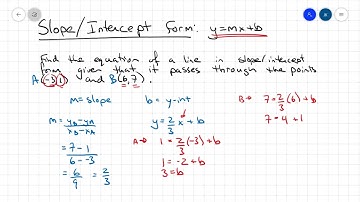 Slope/Intercept Form: y=mx+b
Find the equation of a line in slope/intercept
form given that it passes through the points
A(-3,1) and B(6,7).
m=slope
m= yB-yA / xB-xA
= 7-1 / 6--3
= 6/9 = 2/3
b = y-int
y= 2/3 x + b
A→ 1= 2/3 (-3)+b
1= -2+b
3=b
B→ 7= 2/3 (6)+b
7=4+1